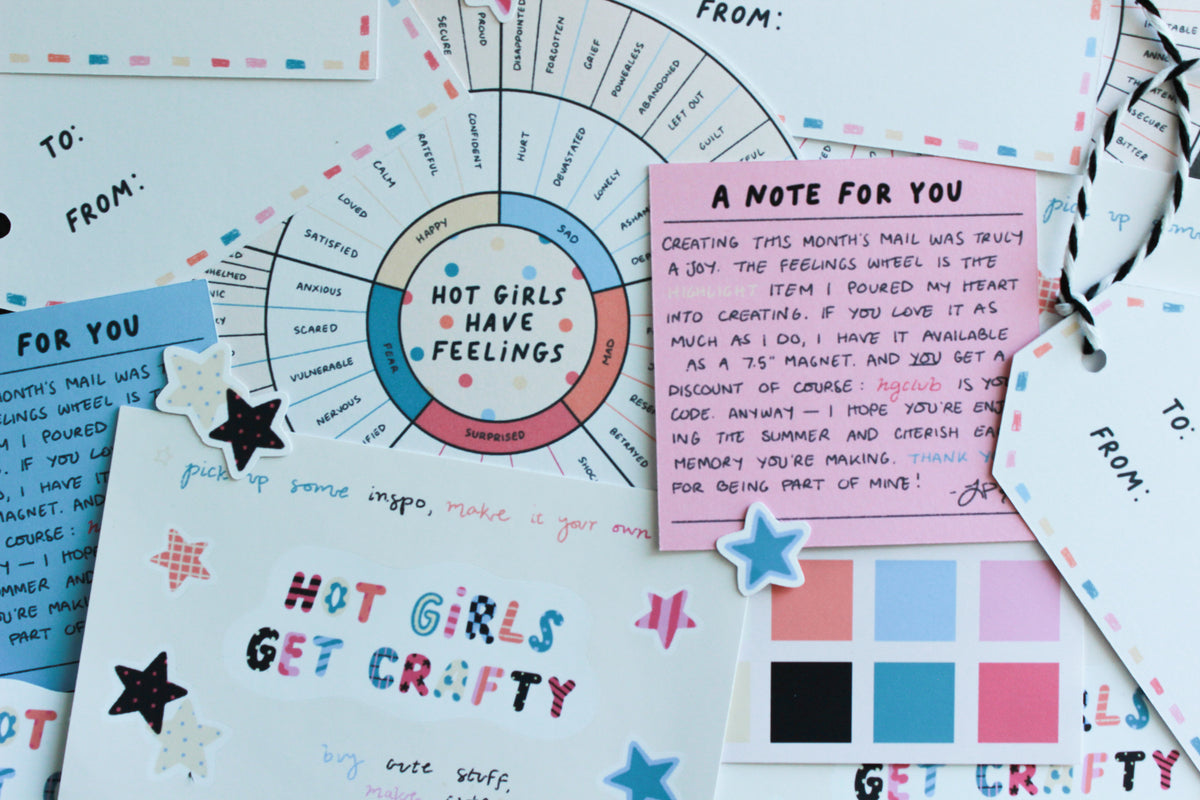 FROM:
TO:
FROM:
SECURE
PROUD
DISAPPOINTED
FORGOTTEN
GRIEF
POWERLESS
ABANDONED
LEFT OUT
GUILT
CONFIDENT
CALM
LOVED
SATISFIED
HURT
DEVASTATED
LONELY
HAPPY
SAD
MAD
SURPRISED
FEAR
HOT GIRLS
HAVE
FEELINGS
ANXIOUS
SCARED
VULNERABLE
NERVOUS
BETRAYED
BITTER
A NOTE FOR YOU
CREATING THIS MONTH'S MAIL WAS TRULY
A JOY. THE FEELINGS WHEEL IS THE
HIGHLIGHT ITEM I POURED MY HEART
INTO CREATING. IF YOU LOVE IT AS
MUCH AS I DO, I HAVE IT AVAILABLE
AS A 7.5" MAGNET. AND YOU GET A
DISCOUNT OF COURSE: hgclub IS
CODE. ANYWAY — I HOPE YOU'RE
ING THE SUMMER AND CHERISH
MEMORY YOU'RE MAKING. THANK
FOR BEING PART OF MINE!
pick up
TO:
FROM:
FOR YOU
MONTH'S MAIL WAS
WHEEL IS
I POURED
IF YOU
I HAVE IT
MAGNET. AND
COURSE:
I
AND
PART OF
pick up some inspo, make it your own
HOT GIRLS
GET CRAFTY
buy cute stuff,
make
GET CRAFTY